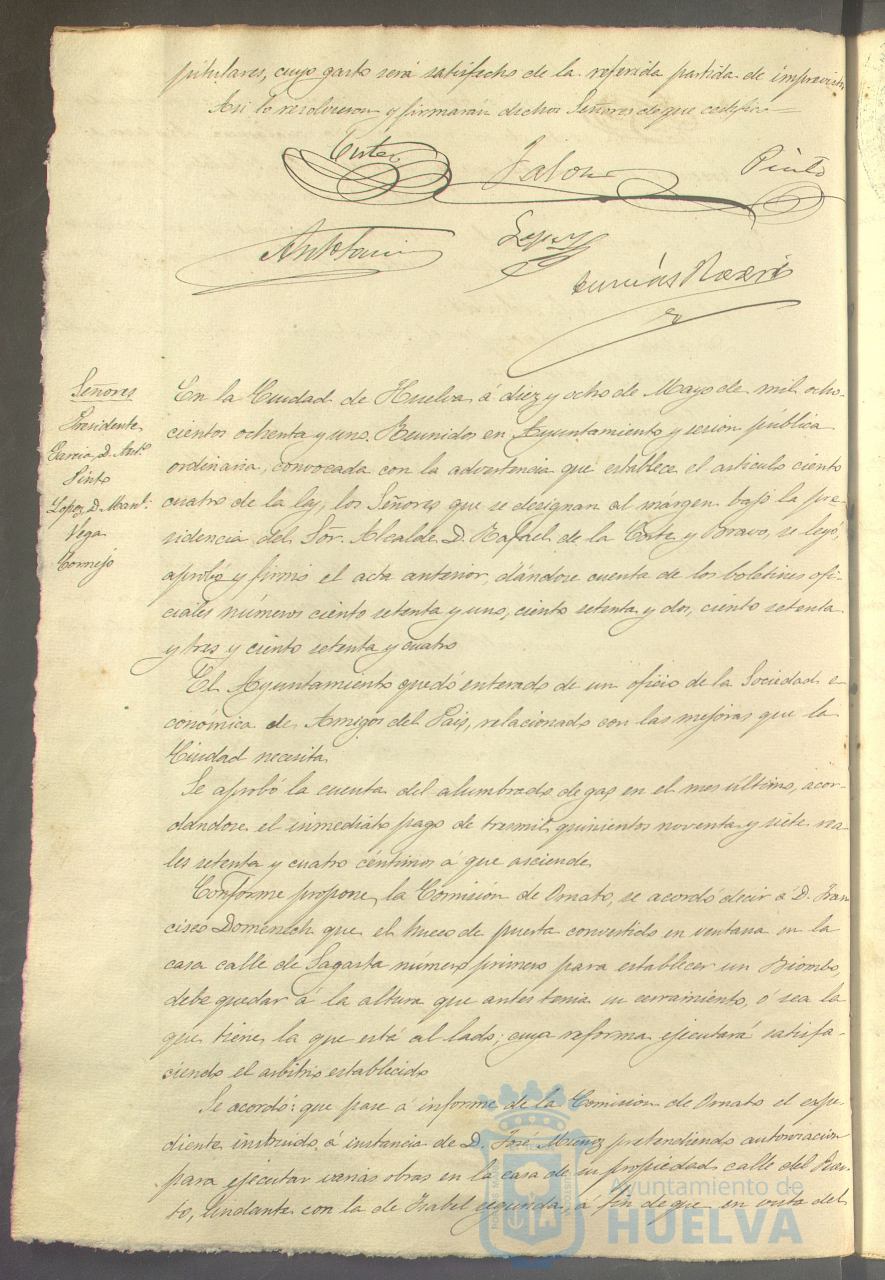 pitulares, cuyo gasto será satisfecho de la referida partida de imprevistos
Asi lo resolvieron y firmarán dichos Señores de que certifico=
Corte
Jalon
Pinto
Lopez
Señores
Presidente
Garcia, D. Ant.º
Pinto
Lopez, D. Manl.
Vega
Cornejo
En la Ciudad de Huelva á diez y ocho de Mayo de mil ocho-
cientos ochenta y uno. Reunidos en Ayuntamiento y sesion pública
ordinaria, convocada con la advertencia que establece el articulo ciento
cuatro de la ley, los Señores que se designan al margen bajo la pre-
sidencia del Sor. Alcalde D. Rafael de la Corte y Bravo, se leyó,
aprobó y firmó el acta anterior, dándose cuenta de los boletines ofi-
ciales números ciento setenta y uno, ciento setenta y dos, ciento setenta
y tres y ciento setenta y cuatro
El Ayuntamiento quedó enterado de un oficio de la Sociedad e-
conómica de Amigos del Pais, relacionado con las mejoras que la
Ciudad necesita.
Se aprobó la cuenta del alumbrado de gas en el mes último, acor-
dándose el inmediato pago de tresmil quinientos noventa y siete rea-
les setenta y cuatro céntimos á que asciende.
Conforme propone la Comisión de Ornato, se acordó decir á D. Fran
cisco Domenech que el hueco de puerta convertido en ventana en la
casa calle de Sagasta número primero para establecer un Biombo,
debe quedar á la altura que antes tenia su cerramiento, ó sea la
que tiene la que está al lado; cuya reforma ejecutará satisfa-
ciendo el arbitrio establecido
Se acordó: que pase á informe de la Comision de Ornato el expe-
diente instruido á instancia de D. José Muñoz pretendiendo autorizacion
para ejecutar varias obras en la casa de su propiedad calle del Puer-
to, lindante con la de Isabel segunda, á fin de que en vista del
Ayuntamiento de
HUELVA